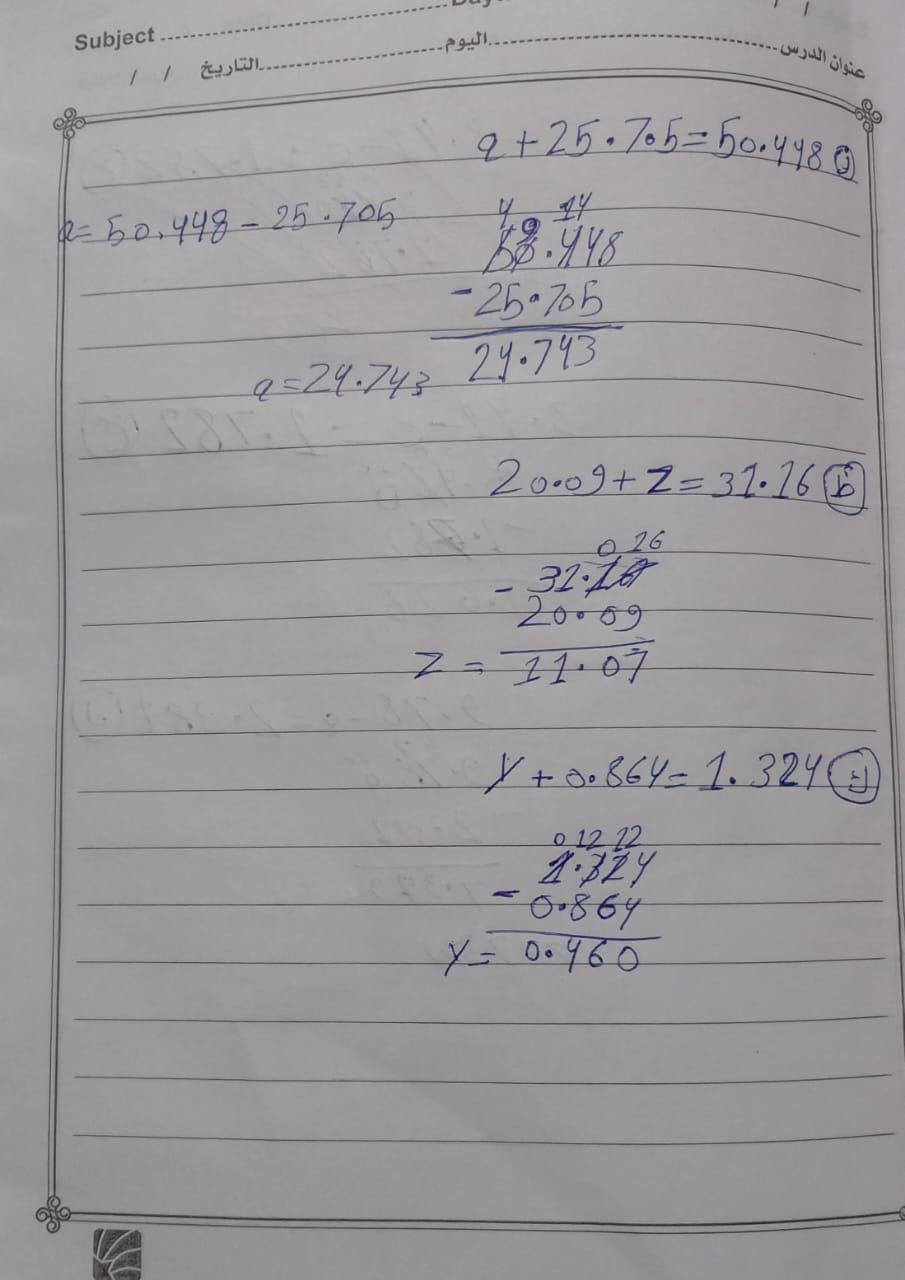 Subject
اليوم
عنوان الدرس
/ / التاريخ
a + 25.705 = 50.448
a = 50.448 - 25.705
4 9 14
50.448
- 25.705
24.743
a = 24.743
20.09 + z = 31.16
0 16
- 31.16
20.09
z = 11.07
y + 0.864 = 1.324
0 12 12
1.324
- 0.864
y = 0.460